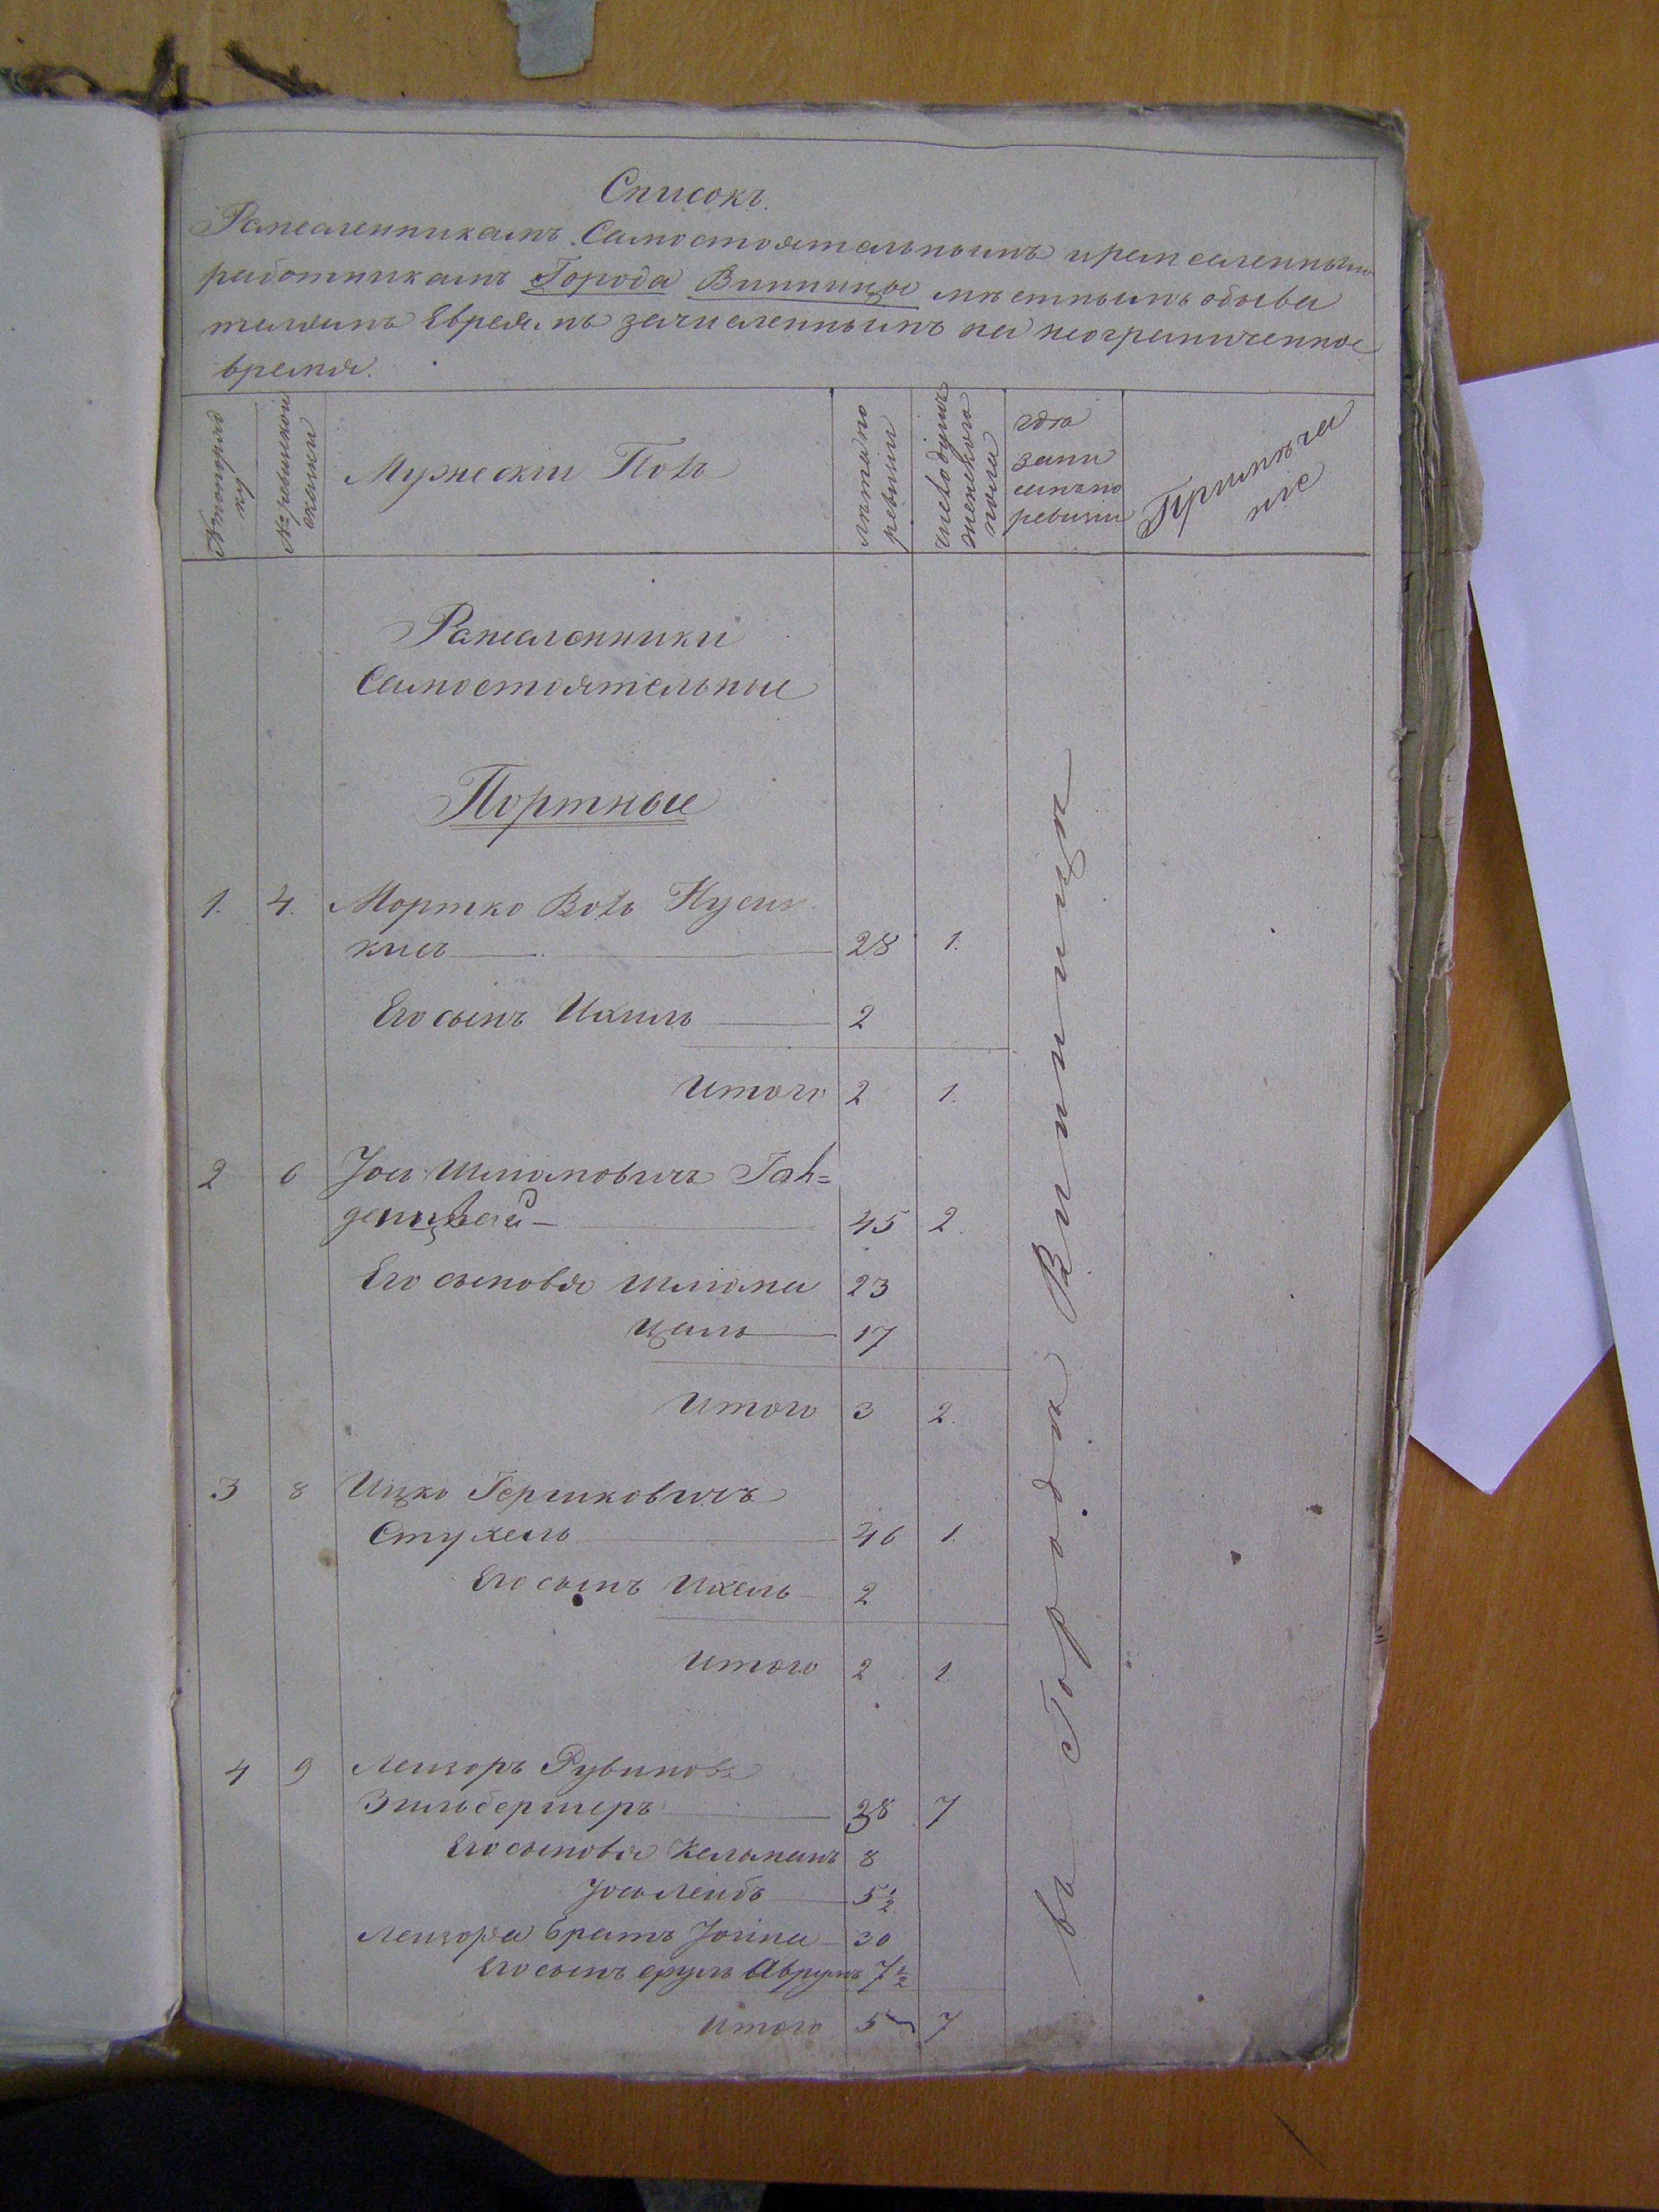 Списокъ.
Ремесленникамъ Самостоятельнымъ иремесленнымъ
работникамъ Города Винницы мѣстнымъ обыва
телямъ Евреямъ зачисленнымъ на неограниченное
время.
№ попоряд
ку
№ ревизской
сказки
Мужескій Полъ
лѣтапо
ревизіи
число душъ
женскаго
пола
гдѣ
запи
санъ по
ревизіи
Примѣча
ніе
Ремесленники
Самостоятельные
Портные
1. 4. Мортко Воль
кисъ 28 1.
Его сынъ Ихиль 2
Итого 2 1.
2 6 Іось Шліомовичъ Гал=
денцвай 45 2
Его сыновья Шліома 23
Цаль 17
Итого 3 2.
3 8 Ицко Гершковичъ
Стухель 46 1.
Его сынъ Ихель 2
Итого 2 1.
4 9 Лейзоръ Рувинова
Зильбершеръ 38 7
Его сыновья Кельманъ 8
Іось Лейбъ 5½
Лейзора братъ Іойна 30
Его сынъ Сруль Аврумъ 7½
Итого 5 7
въ Городѣ Винницѣ